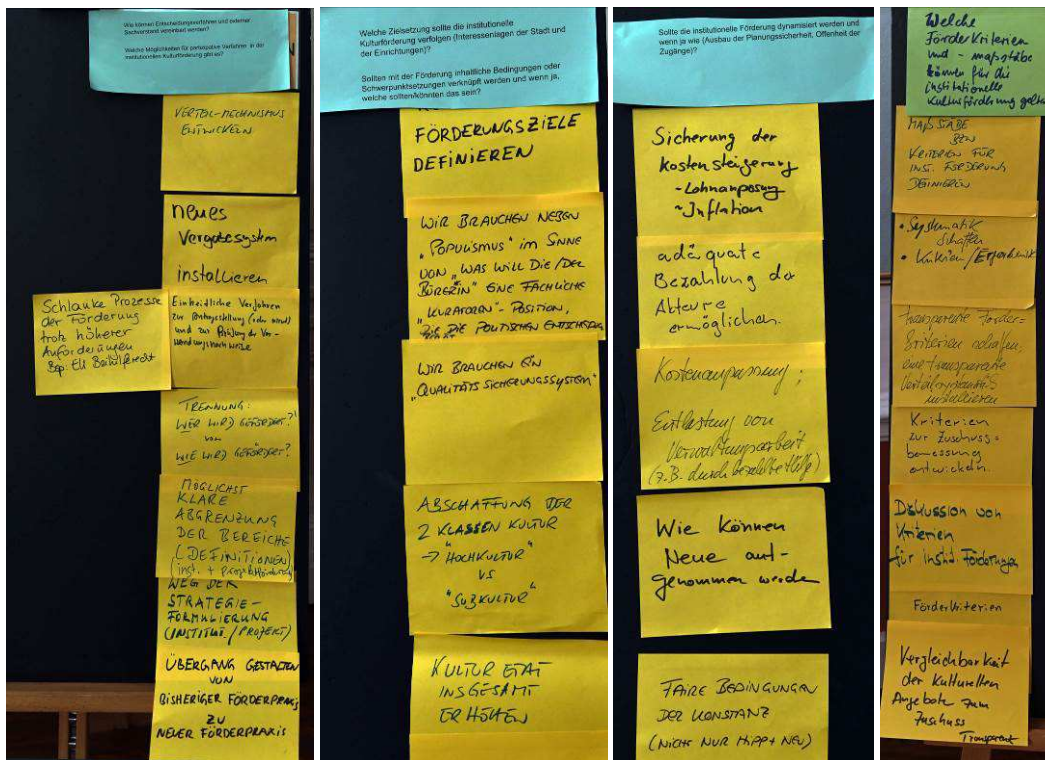 Wie können Entscheidungsverfahren und externer
Sachverstand vereinbart werden?
Welche Möglichkeiten für partizipative Verfahren in der
institutionellen Kulturförderung gibt es?
VERTEIL-MECHANISMUS
ENTWICKELN
neues
Vergabesystem
installieren
Schlanke Prozesse
der Förderung
trotz höherer
Anforderungen
Bsp: EU Beihilferecht
Einheitliche Verfahren
zur Antragstellung
und zur Prüfung der Ver-
wendungsnachweise
TRENNUNG:
WER WIRD GEFÖRDERT?
von
WIE WIRD GEFÖRDERT?
MÖGLICHST
KLARE
ABGRENZUNG
DER BEREICHE
(DEFINITIONEN)
inst. + Projektförderung
WEG DER
STRATEGIE-
FORMULIERUNG
(INSTITUT. / PROJEKT)
ÜBERGANG GESTALTEN
VON
BISHERIGER FÖRDERPRAXIS
ZU
NEUER FÖRDERPRAXIS
Welche Zielsetzung sollte die institutionelle
Kulturförderung verfolgen (Interessenlagen der Stadt und
der Einrichtungen)?
Sollten mit der Förderung inhaltliche Bedingungen oder
Schwerpunktsetzungen verknüpft werden und wenn ja,
welche sollten/könnten das sein?
FÖRDERUNGSZIELE
DEFINIEREN
WIR BRAUCHEN NEBEN
„POPULISMUS“ IM SINNE
VON „WAS WILL DIE/DER
BÜRGERIN“ EINE FACHLICHE
„KURATOREN“-POSITION,
DIE DIE POLITISCHEN ENTSCHEIDER
WIR BRAUCHEN EIN
„QUALITÄTSSICHERUNGSSYSTEM“
ABSCHAFFUNG DER
2 KLASSEN KULTUR
→ "HOCHKULTUR"
VS
"SUBKULTUR"
KULTUR ETAT
INSGESAMT
ERHÖHEN
Sollte die institutionelle Förderung dynamisiert werden und
wenn ja wie (Ausbau der Planungssicherheit, Offenheit der
Zugänge)?
Sicherung der
Kostensteigerung
-Lohnanpassung
-Inflation
adäquate
Bezahlung der
Akteure
ermöglichen.
Kostenanpassung;
Entlastung von
Verwaltungsarbeit
(z.B. durch bezahlte Hilfe)
Wie können
Neue auf-
genommen werden
FAIRE BEDINGUNGEN
DER KONSTANZ
(NICHT NUR HIPP + NEU)
Welche
Förderkriterien
und - maßstäbe
können für die
institutionelle
Kulturförderung gelten
MAßSTÄBE
BZW
KRITERIEN FÜR
INST. FÖRDERUNG
DEFINIEREN
• Systematik
schaffen
• Kriterien/
transparente Förder-
kriterien schaffen,
eine transparente
installieren
Kriterien
zur Zuschuss-
bemessung
entwickeln.
Diskussion von
Kriterien
für Instit. Förderungen
Förderkriterien
Vergleichbarkeit
der kulturellen
Angebote zum
Zuschuss
Transparent